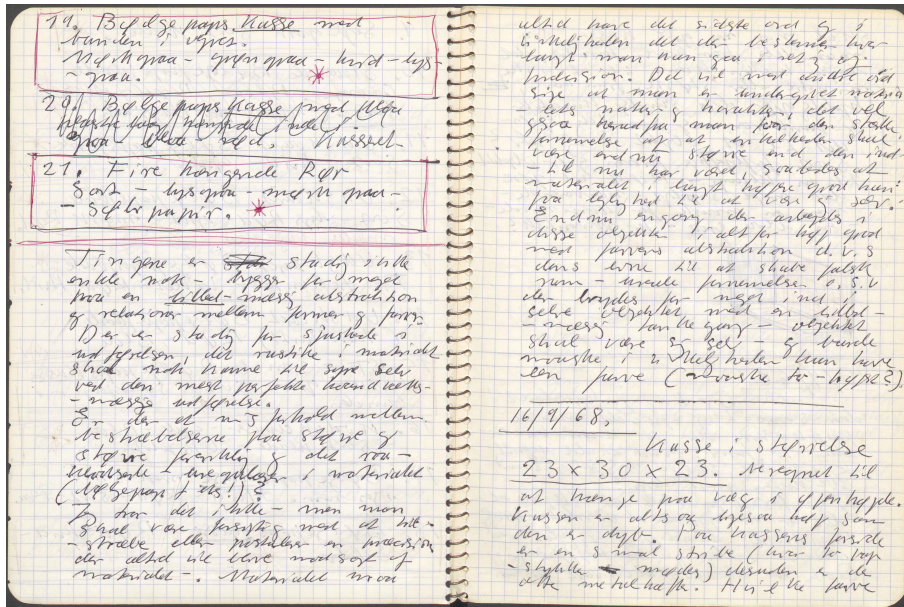 19. Bølge paps kasse med
bunden i vejret.
Mørkgraa - grøn graa - hvid - lys-
- graa.
20. Bølge paps kasse med
paa Kasseret
21. Fire hængende Rør
Sort - lysgraa - mørk graa -
- Sølv papir.
Tingene er stadig ikke
enkle nok - bygger for meget
paa en billed-mæssig abstraktion
og relationer mellem former og farver.
Der er stadig for sjusket i
udførelsen, det rustikke i materialet
skal nok komme til syne selv
ved den mest perfekte haandværks-
- mæssige udførelse.
Er der et misforhold mellem
bestræbelserne paa større og
større forenkling og det raa-
i materialet
(bølgepap f. eks!)?
Jeg tror det ikke - men man
skal være forsigtig med at til-
- stræbe eller postulere en præcision
der altid vil blive modsagt af
materialet -. Materialet maa
altid have det sidste ord og i
virkeligheden det der bestemmer hvor
langt man kan gaa i retning af
præcision. Det vil med andre ord
sige at man er underlagt materia-
- lets natur og karakter, det vil
ogsaa man for den stærke
fornemmelse af at enkelheden skal
være endnu større end den ind-
- til nu har været, saaledes at
materialet i langt højere grad kan
faa lejlighed til at være sig selv.
Endnu engang der arbejdes i
disse objekter i alt for høj grad
med farvens abstraktion d.v.s
dens evne til at skabe falsk
rum - fornemmelser o.s.v
der brydes for meget ind i
selve objektet med en billed-
- mæssig tankegang - objektet
skal være sig selv - og burde
maaske i virkeligheden kun have
een farve (maaske to - højst?)
16/9/68.
Kasse i størrelse
23 x 30 x 23. beregnet til
at hænge paa væg i øjenhøjde.
Kassen er altsaa ligesaa høj som
den er dyb. Paa kassens forside
er en smal stribe (hvor to pap
- stykker mødes) desuden er der
otte metalhæfter. Hvilke farve